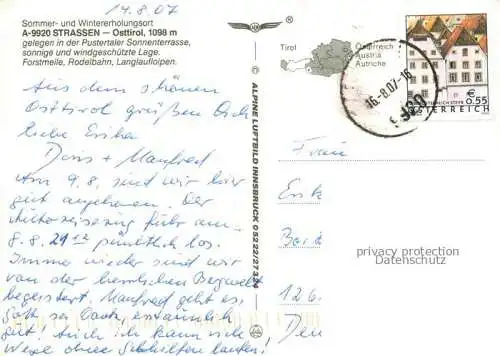 14.8.07
Sommer- und Wintererholungsort
A-9920 STRASSEN — Osttirol, 1098 m
gelegen in der Pustertaler Sonnenterrasse,
sonnige und windgeschützte Lage.
Forstmeile, Rodelbahn, Langlaufloipen.
Aus dem schönen
Osttirol grüßen Dich
liebe Erika
Doris + Manfred
Am 9.8. sind wir hier
gut angekommen. Der
Autoreisezug fuhr am
8.8. 21 12 pünktlich los.
Immer wieder sind wir
von der herrlichen Bergwelt
begeistert. Manfred geht es,
Gott sei Dank, erstaunlich
gut! Auch ich kann viele
Wege ohne Schmerzen laufen!
ALPINE LUFTBILD INNSBRUCK 05222/37324
Tirol
Österreich
Austria
Autriche
-6.-8.07-16
€ 0.55
ÖSTERREICH
Frau
Erik
Ber
126
Den
privacy protection
Datenschutz